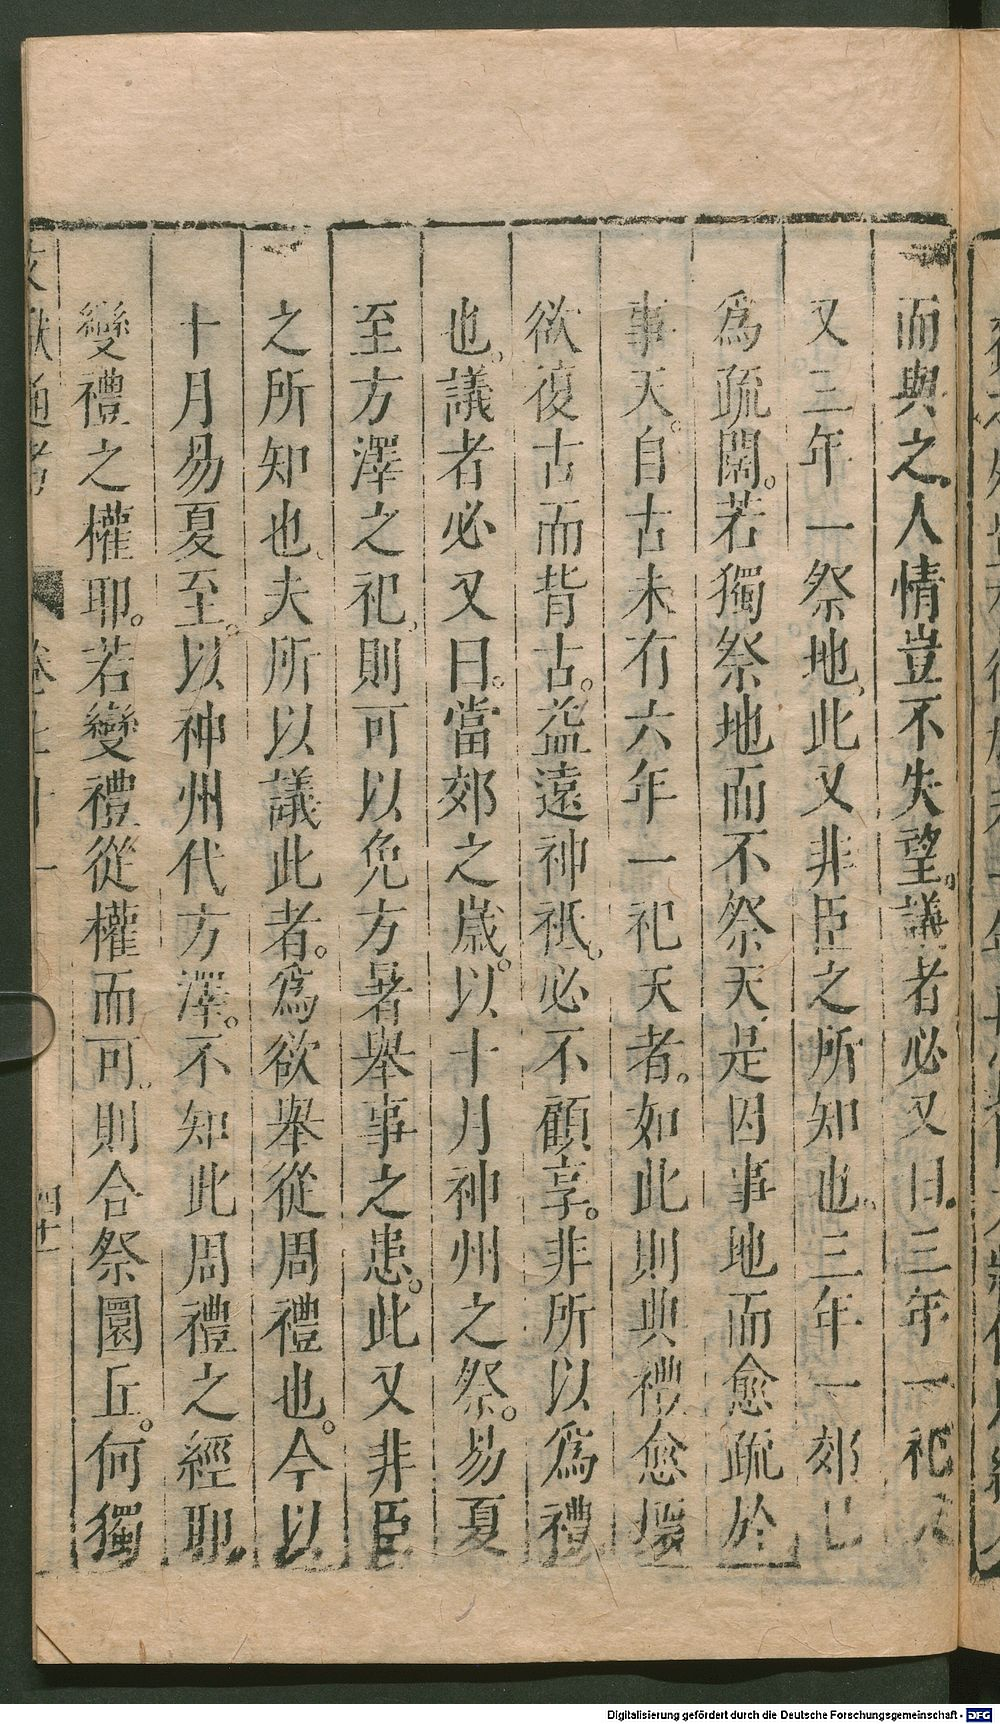 而與之人情豈不失望。議者必又曰。三年一祀天
又三年一祭地。此又非臣之所知也。三年一郊已
爲疏闊。若獨祭地而不祭天。是因事地而愈疏於
事天。自古未有六年一祀天者。如此則典禮愈壞
欲復古而背古。益遠神祇。必不顧享。非所以爲禮
也。議者必又曰。當郊之歲。以十月神州之祭。易夏
至方澤之祀。則可以免方暑舉事之患。此又非臣
之所知也。夫所以議此者。爲欲舉從周禮也。今以
十月易夏至。以神州代方澤。不知此周禮之經耶
變禮之權耶。若變禮從權而可。則合祭圜丘。何獨
文獻通考 卷七十一 四十一
Digitalisierung gefördert durch die Deutsche Forschungsgemeinschaft - DFG